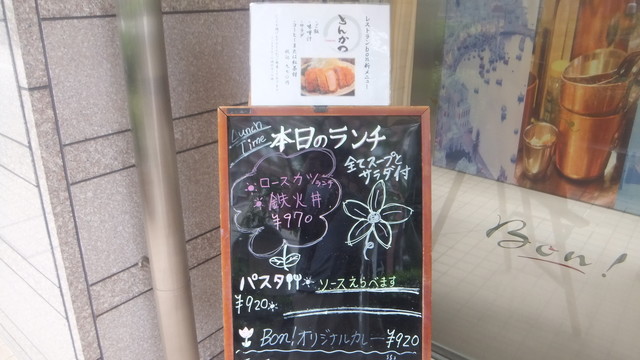 レストランbon新メニュー
きんかつ
Lunch Time
本日のランチ
全てスープと
サラダ付
ロースカツランチ
鉄火丼
¥970
パスタ
ソースえらべます
¥920
Bon!オリジナルカレー ¥920
Bon!